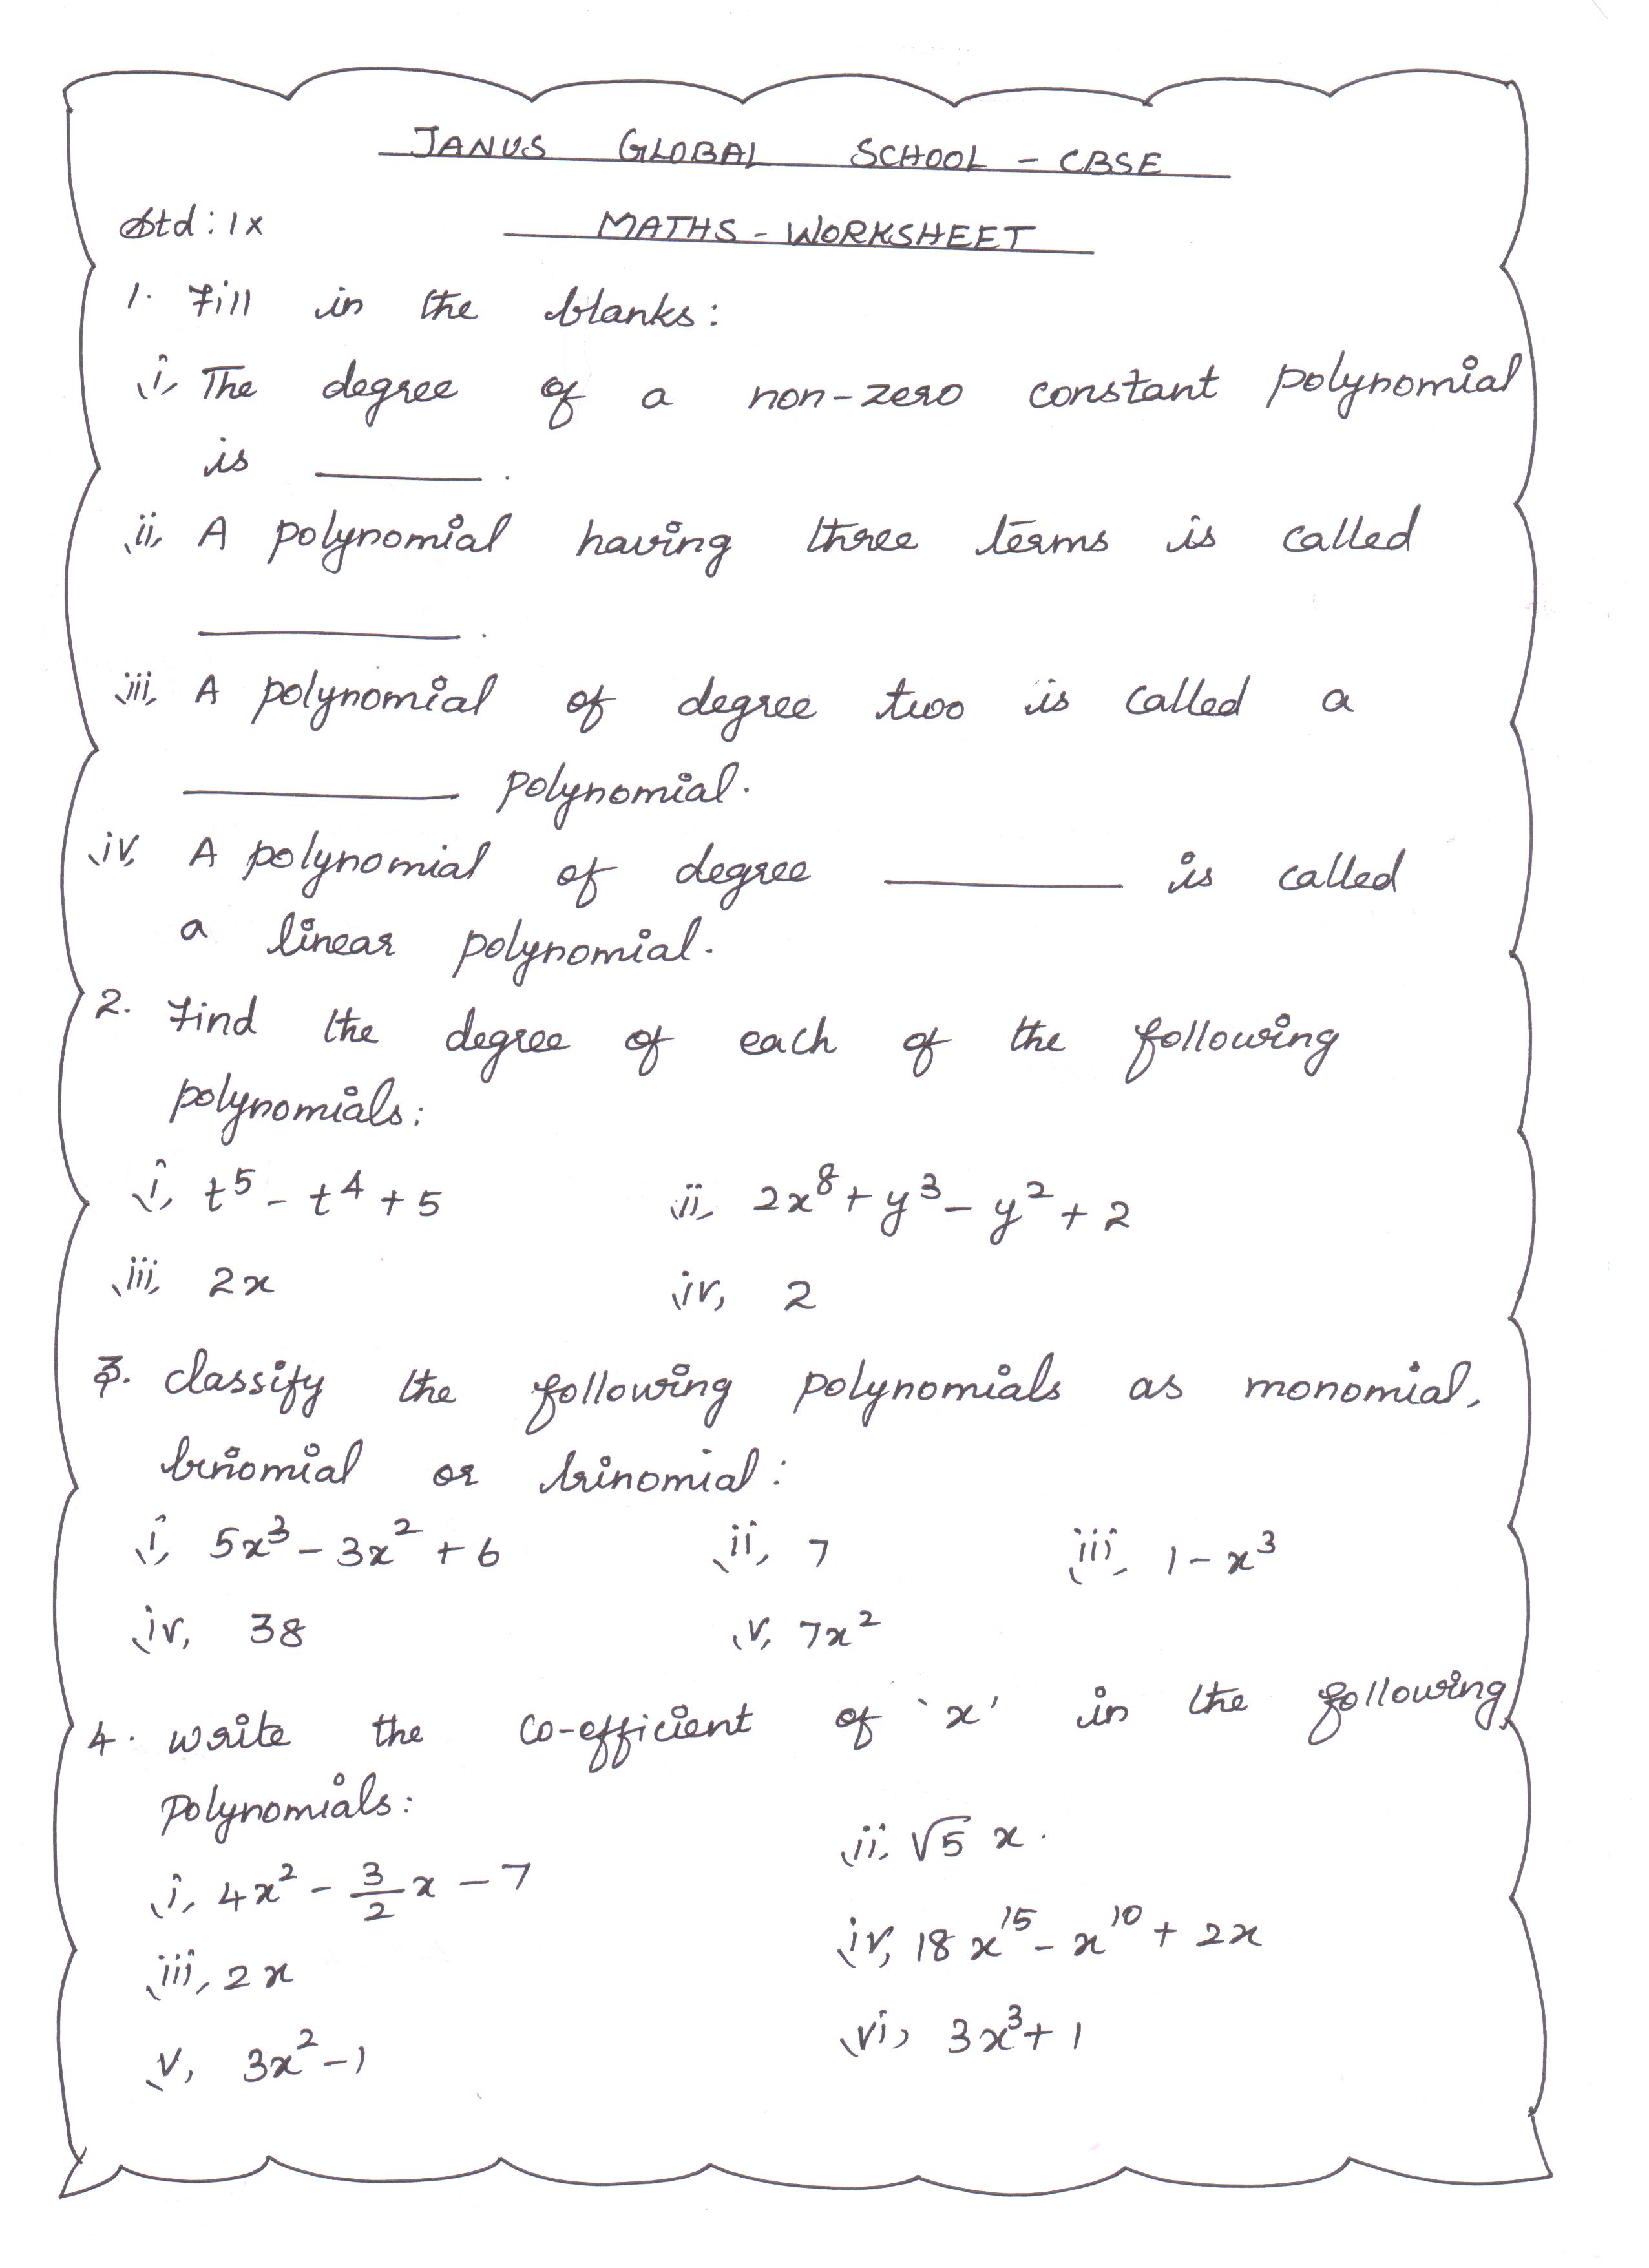 JANUS GLOBAL SCHOOL - CBSE
Std: IX MATHS - WORKSHEET
1. Fill in the blanks:
i, The degree of a non-zero constant polynomial
is ________.
ii, A polynomial having three terms is called
________.
iii, A polynomial of degree two is called a
________ polynomial.
iv, A polynomial of degree ________ is called
a linear polynomial.
2. Find the degree of each of the following
polynomials:
i, t⁵ - t⁴ + 5 ii, 2x⁸ + y³ - y² + 2
iii, 2x iv, 2
3. classify the following polynomials as monomial,
binomial or trinomial:
i, 5x³ - 3x² + 6 ii, 7 iii, 1 - x³
iv, 38 v, 7x²
4. write the co-efficient of 'x' in the following
polynomials:
i, 4x² - 3/2 x - 7 ii, √5 x.
iii, 2x iv, 18x¹⁵ - x¹⁰ + 2x
v, 3x² - 1 vi, 3x³ + 1